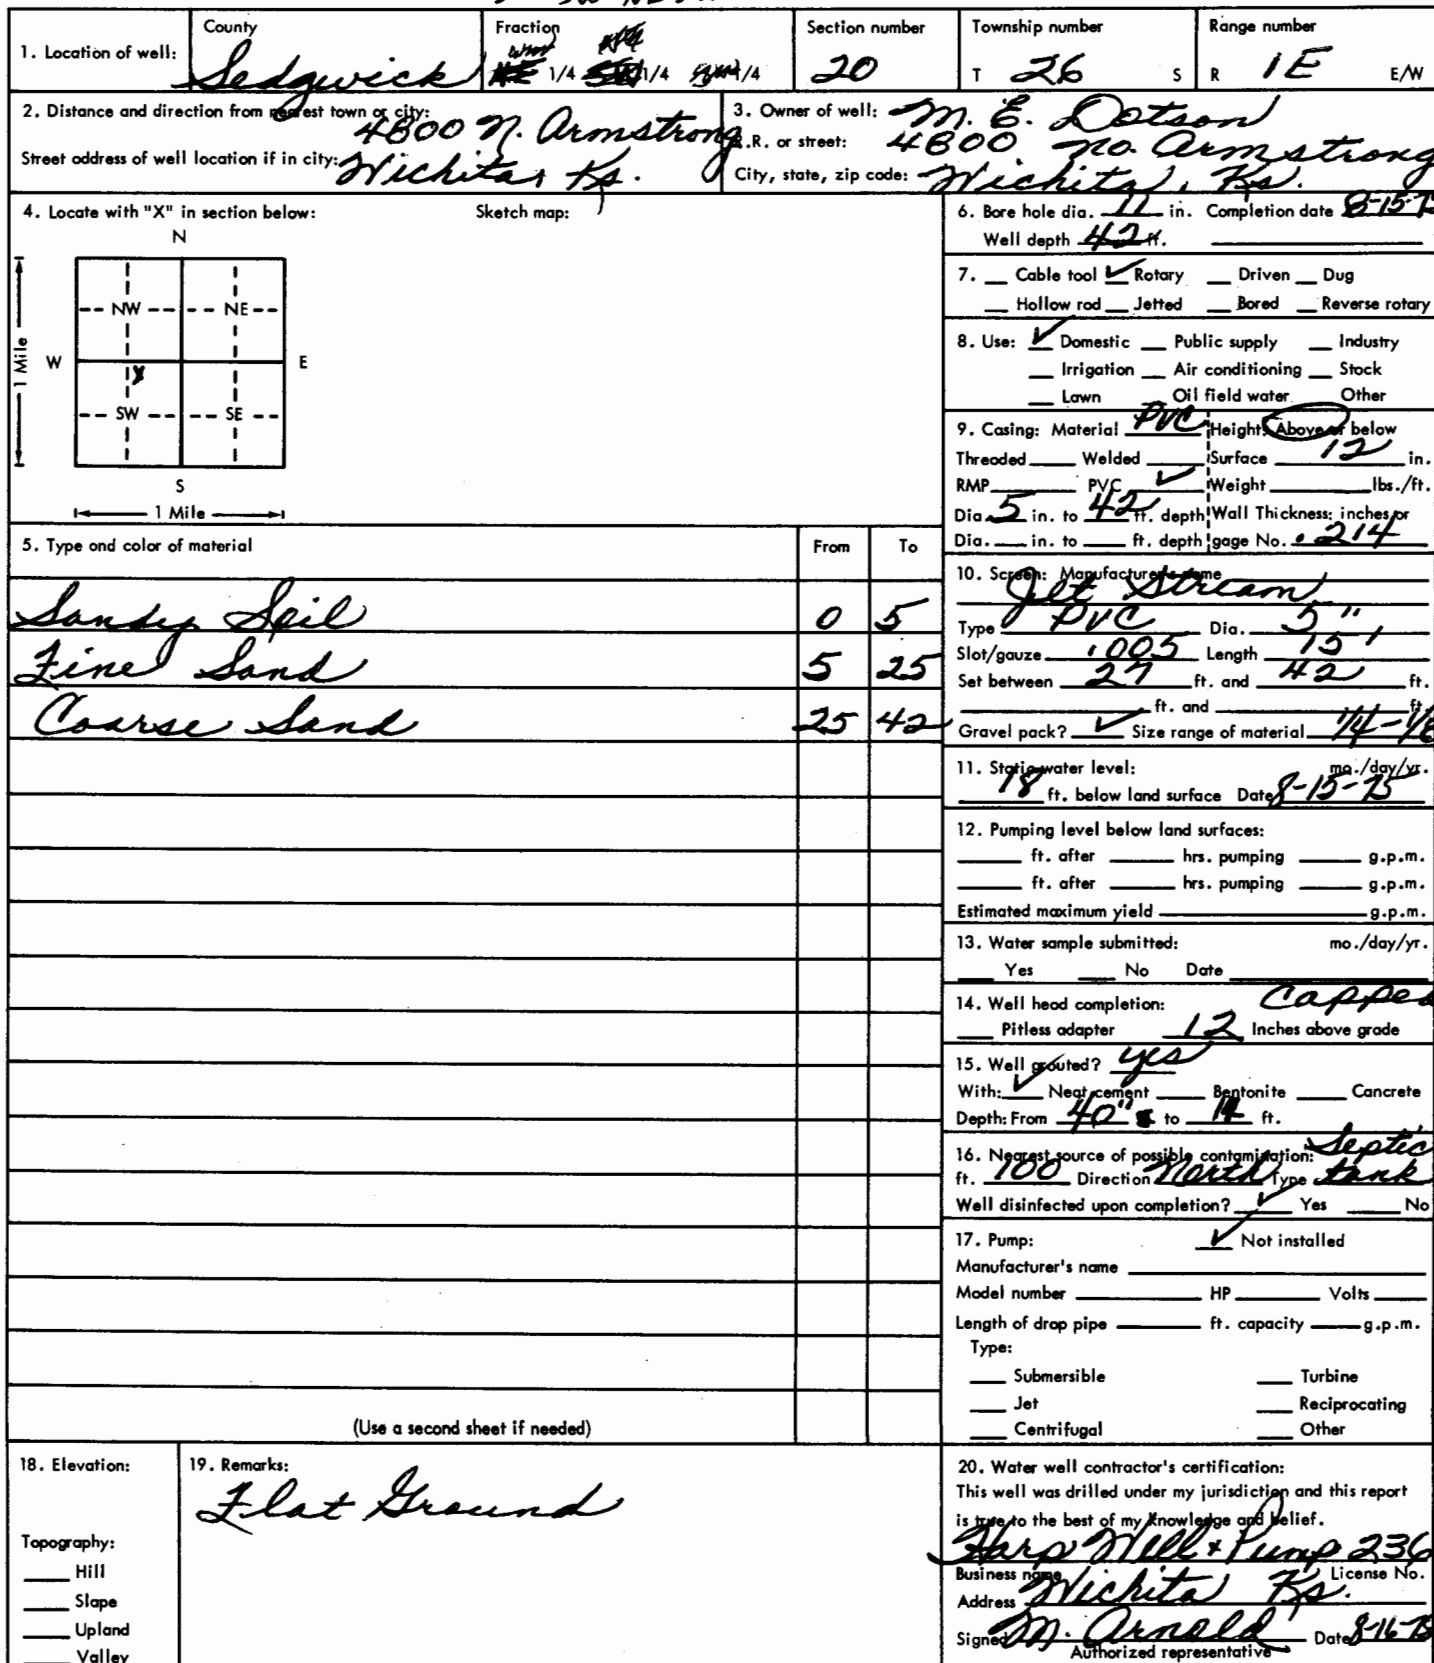 1. Location of well:
County
Sedgwick
Fraction
1/4 1/4 1/4
Section number
20
Township number
T 26 S
Range number
R 1E E/W
2. Distance and direction from nearest town or city:
4800 N. Armstrong
Street address of well location if in city: Wichita, Ks.
3. Owner of well: M. E. Dotson
R.R. or street: 4800 no. Armstrong
City, state, zip code: Wichita, Ks.
4. Locate with "X" in section below:
Sketch map:
N
NW NE
W E
X
SW SE
S
1 Mile
1 Mile
5. Type and color of material From To
Sandy Soil 0 5
Fine Sand 5 25
Coarse Sand 25 42
(Use a second sheet if needed)
6. Bore hole dia. 11 in. Completion date 8-15-75
Well depth 42 ft.
7. Cable tool ✓ Rotary Driven Dug
Hollow rod Jetted Bored Reverse rotary
8. Use: ✓ Domestic Public supply Industry
Irrigation Air conditioning Stock
Lawn Oil field water Other
9. Casing: Material PVC Height: Above or below
Threaded Welded Surface 12 in.
RMP PVC ✓ Weight lbs./ft.
Dia. 5 in. to 42 ft. depth Wall Thickness: inches or
Dia. in. to ft. depth gage No. .214
10. Screen: Manufacturer's name
Jet Stream
Type PVC Dia. 5"
Slot/gauze .005 Length 15'
Set between 27 ft. and 42 ft.
ft. and ft.
Gravel pack? ✓ Size range of material 1/4-1/8
11. Static water level: mo./day/yr.
18 ft. below land surface Date 8-15-75
12. Pumping level below land surfaces:
ft. after hrs. pumping g.p.m.
ft. after hrs. pumping g.p.m.
Estimated maximum yield g.p.m.
13. Water sample submitted: mo./day/yr.
Yes No Date
14. Well head completion: Capped
Pitless adapter 12 Inches above grade
15. Well grouted? yes
With: ✓ Neat cement Bentonite Concrete
Depth: From 40" to 14 ft.
16. Nearest source of possible contamination: Septic
ft. 100 Direction North Type tank
Well disinfected upon completion? ✓ Yes No
17. Pump: ✓ Not installed
Manufacturer's name
Model number HP Volts
Length of drop pipe ft. capacity g.p.m.
Type:
Submersible Turbine
Jet Reciprocating
Centrifugal Other
18. Elevation:
Topography:
Hill
Slope
Upland
Valley
19. Remarks:
Flat Ground
20. Water well contractor's certification:
This well was drilled under my jurisdiction and this report
is true to the best of my knowledge and belief.
Harp Well & Pump 236
Business name License No.
Address Wichita Ks.
Signed M. Arnold Date 8-16-75
Authorized representative